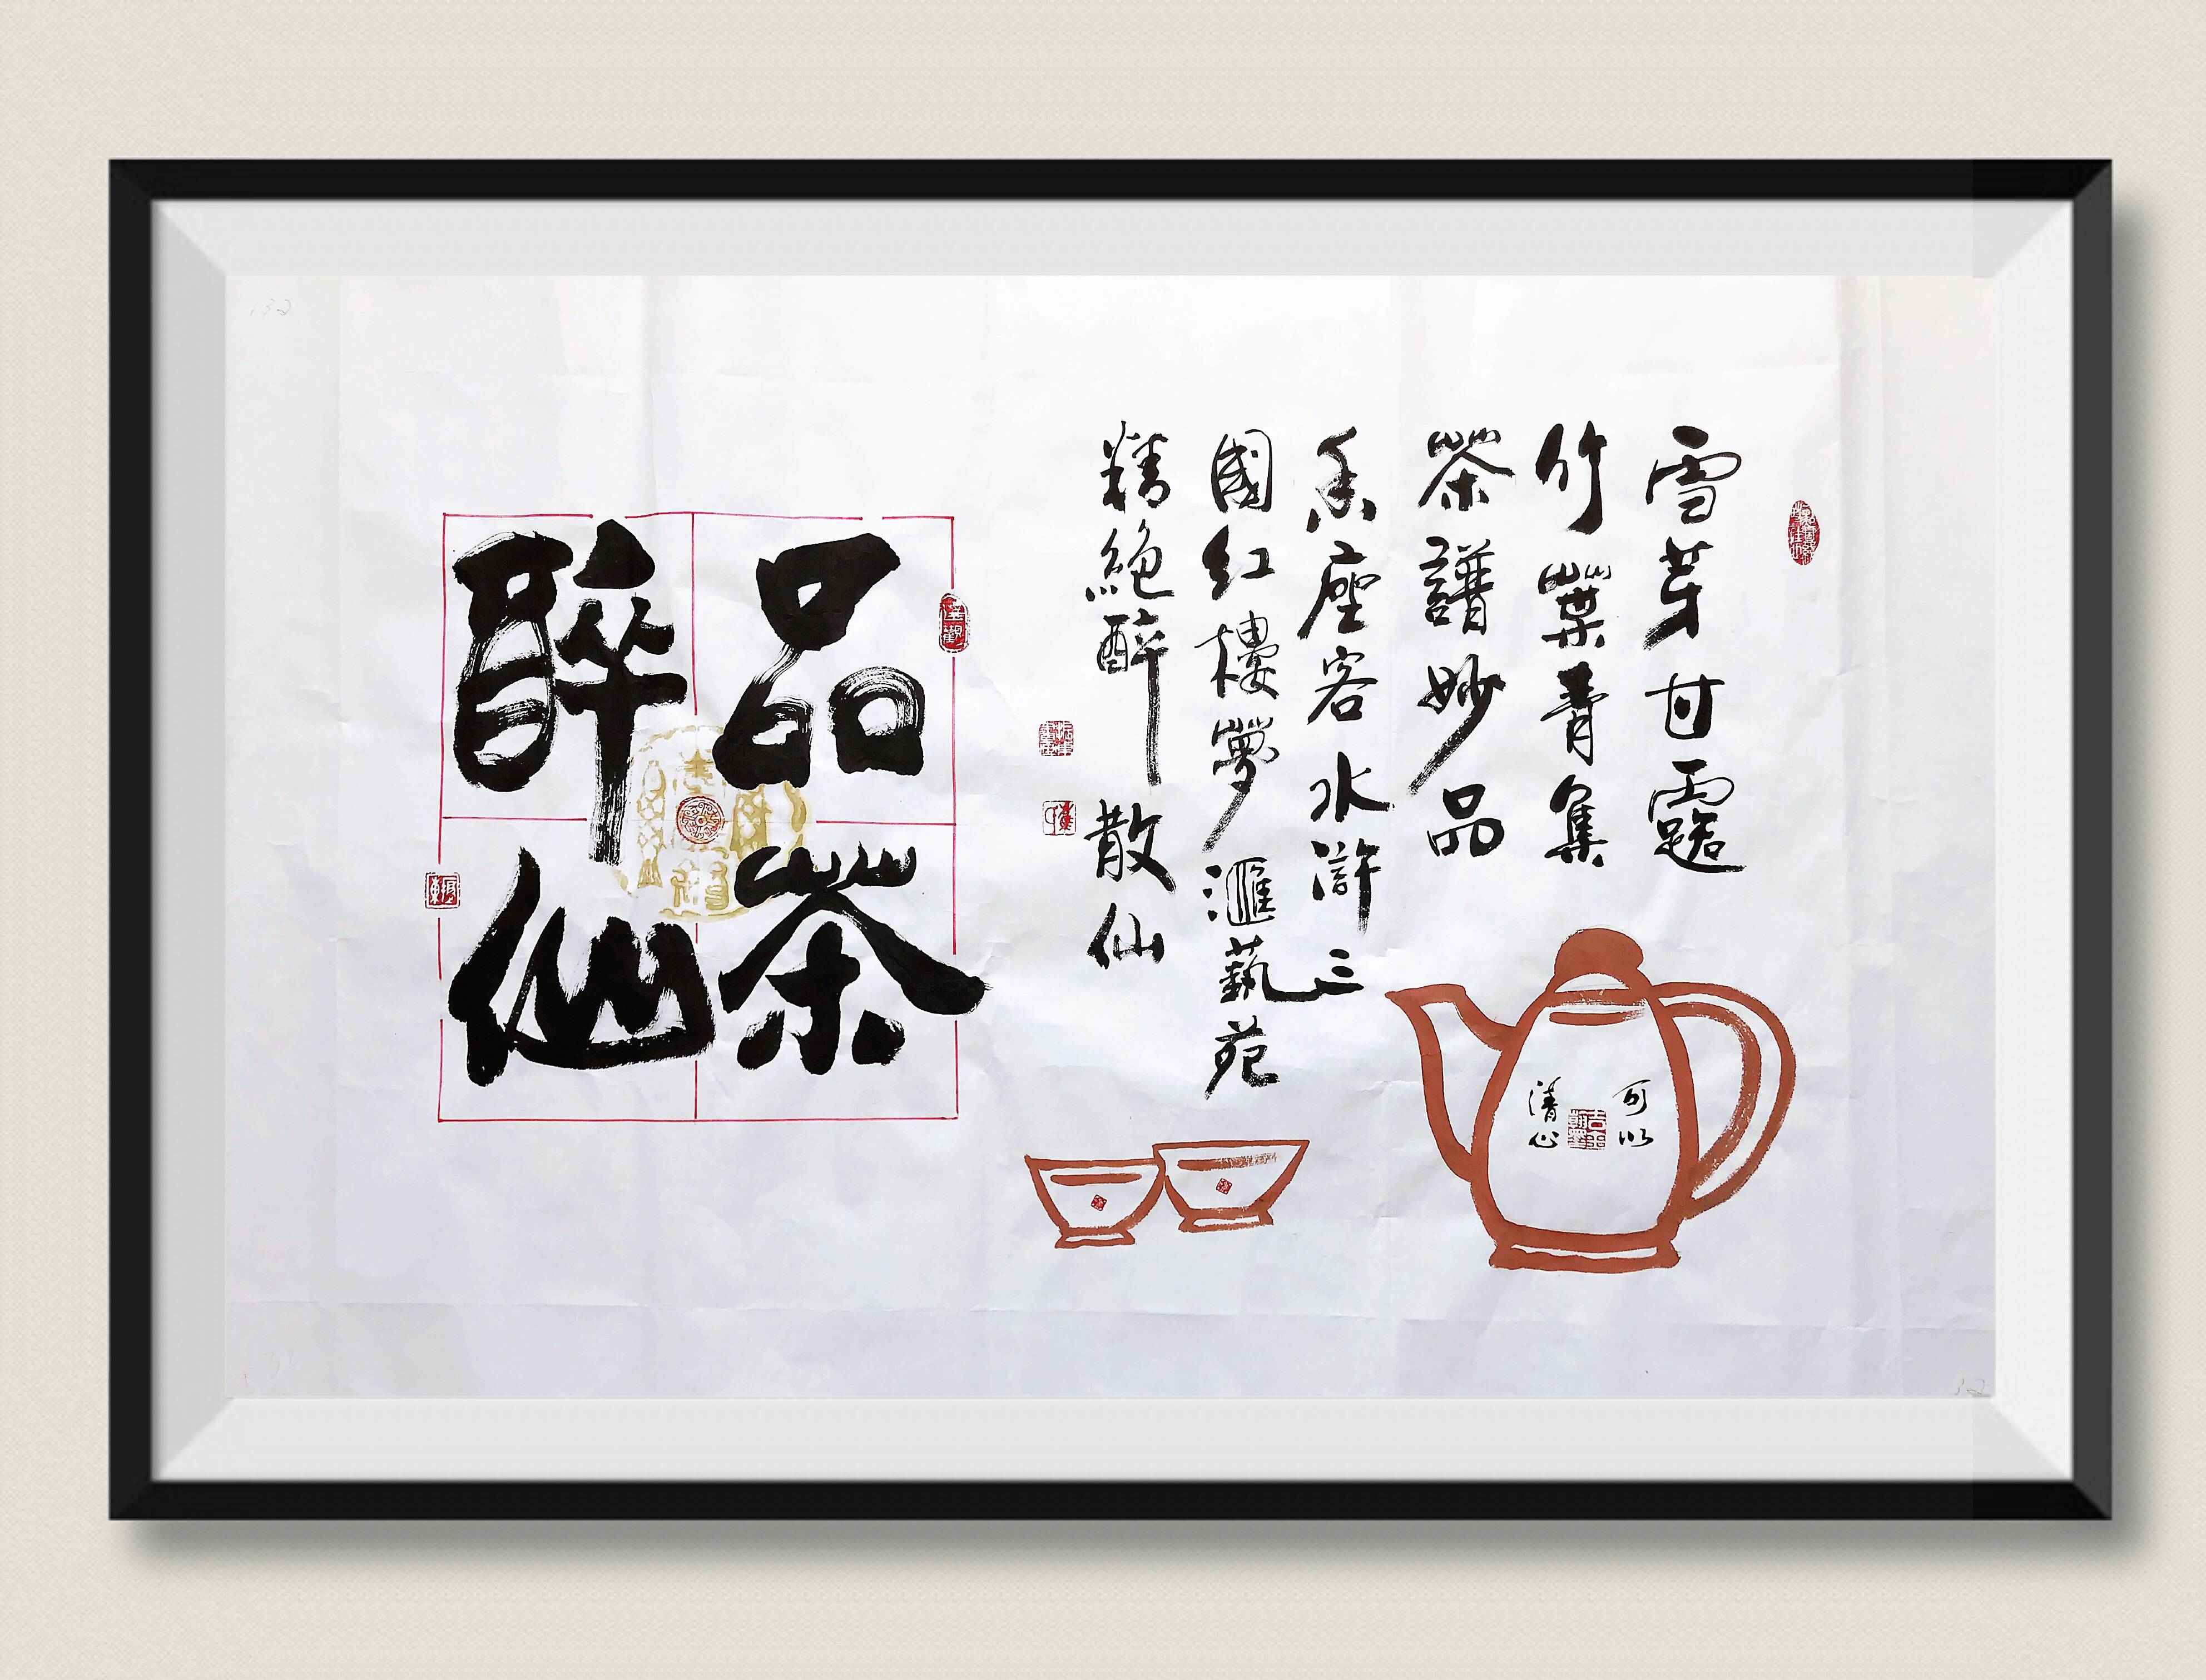 雪芽甘露
竹葉青集
茶譜妙品
香座客水滸三
國紅樓夢滙藝苑
精絕醉散仙
品茶
醉仙
可以
清心